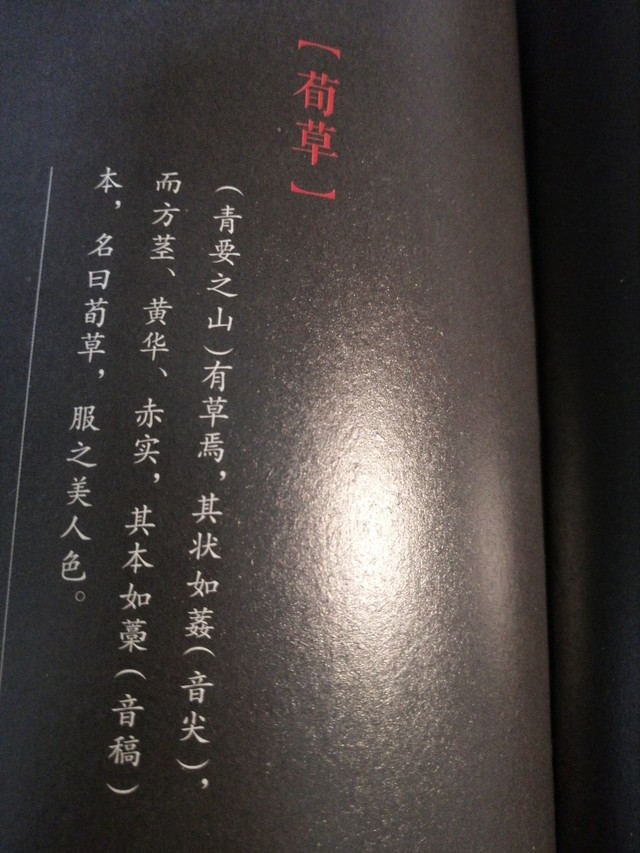 【荀草】
（青要之山）有草焉，其状如葌（音尖），
而方茎、黄华、赤实，其本如藁（音稿）
本，名曰荀草，服之美人色。